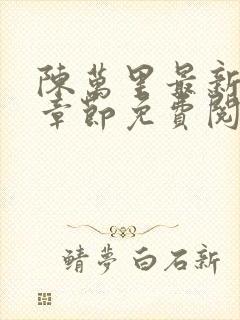 陳萬里最新
章節免費閱
鯖夢白石新